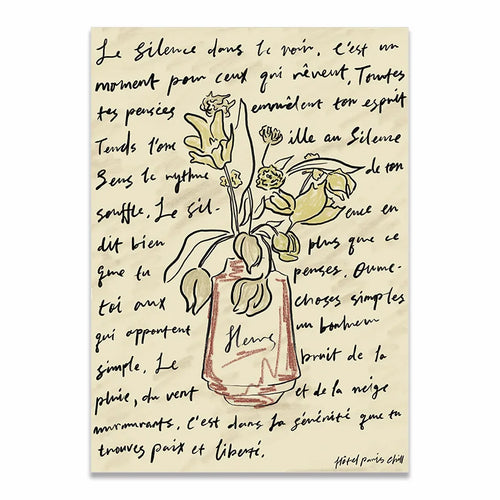 Le silence dans le noir. C'est un
moment pour ceux qui rêvent. Toutes
tes pensées emmêlent ton esprit
Tends l'oreille au Silence
Sens le rythme de ton
souffle. Le silence en
dit bien plus que ce
que tu penses. Ouvre-
toi aux choses simples
qui apportent un bonheur
fleurs
simple. Le bruit de la
pluie, du vent et de la neige
murmurants. C'est dans la sérénité que tu
trouves paix et liberté.
Hôtel paris chill